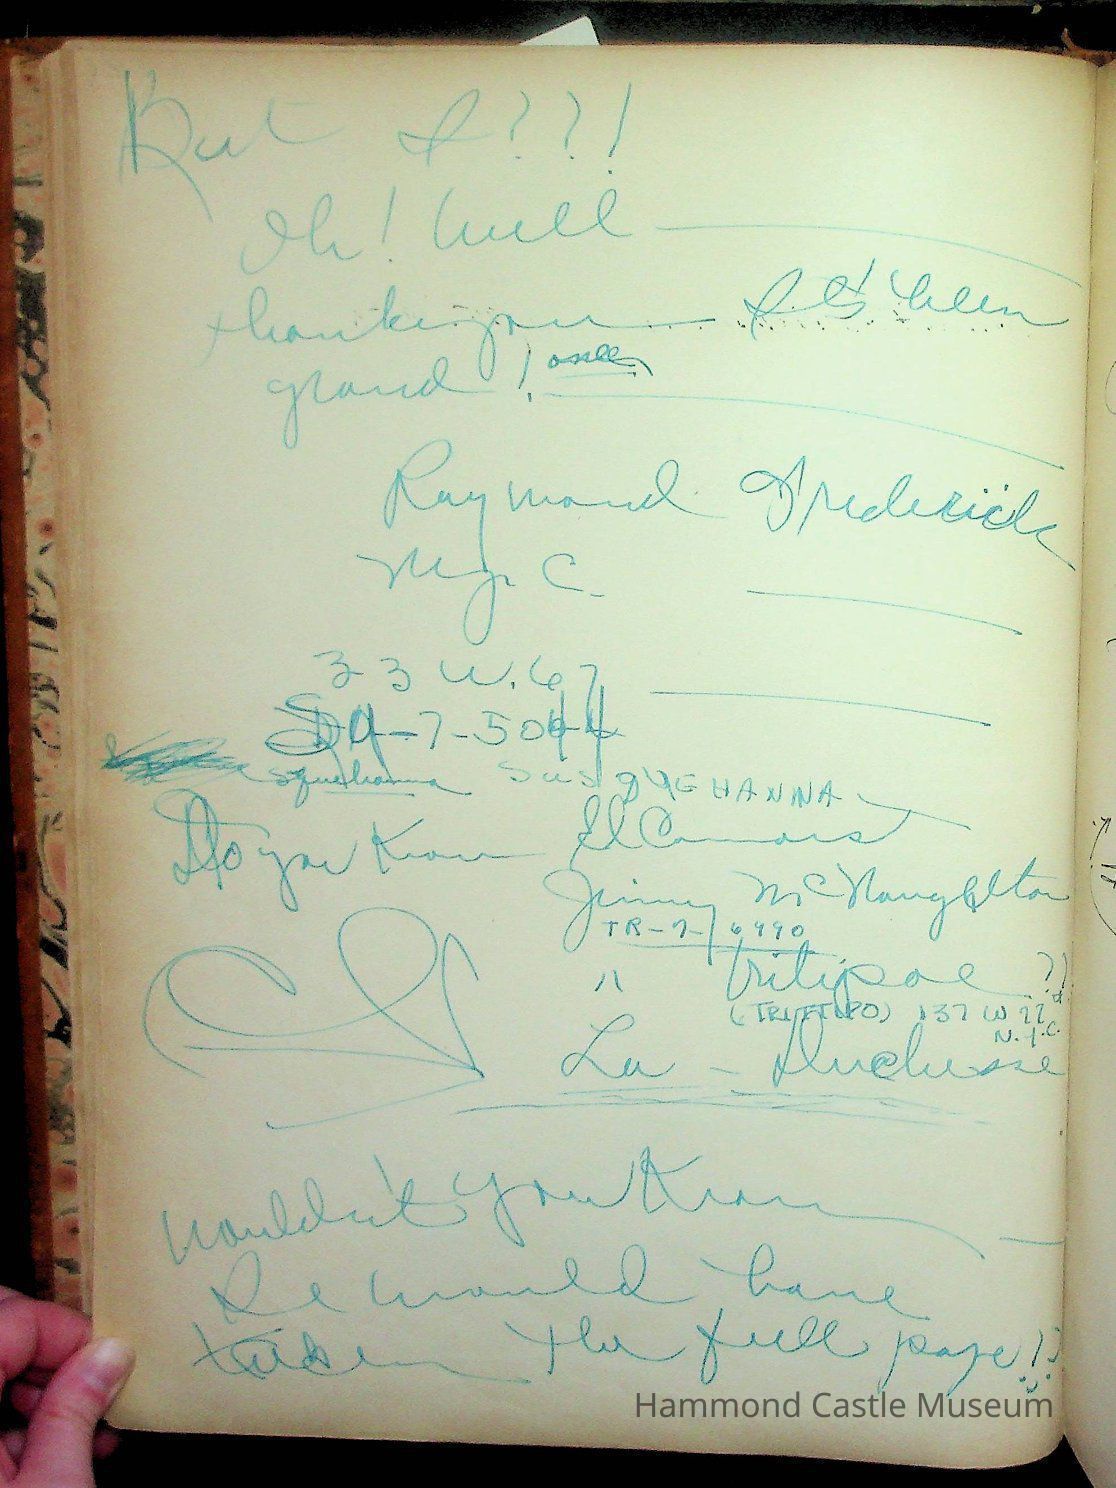 But I???!
Oh! Well
thank you It's been
grand!
Raymond Frederick
N.Y.C.
33 W. 67
SU-7-5044
Squehanna SUSQUEHANNA
Do you Know
Jimmy McNaughton
TR-7-6990
" ??
137 W 77
N.Y.C.
La - Duchesse
Wouldn't you Know
he would have
taken the full page!?
Hammond Castle Museum